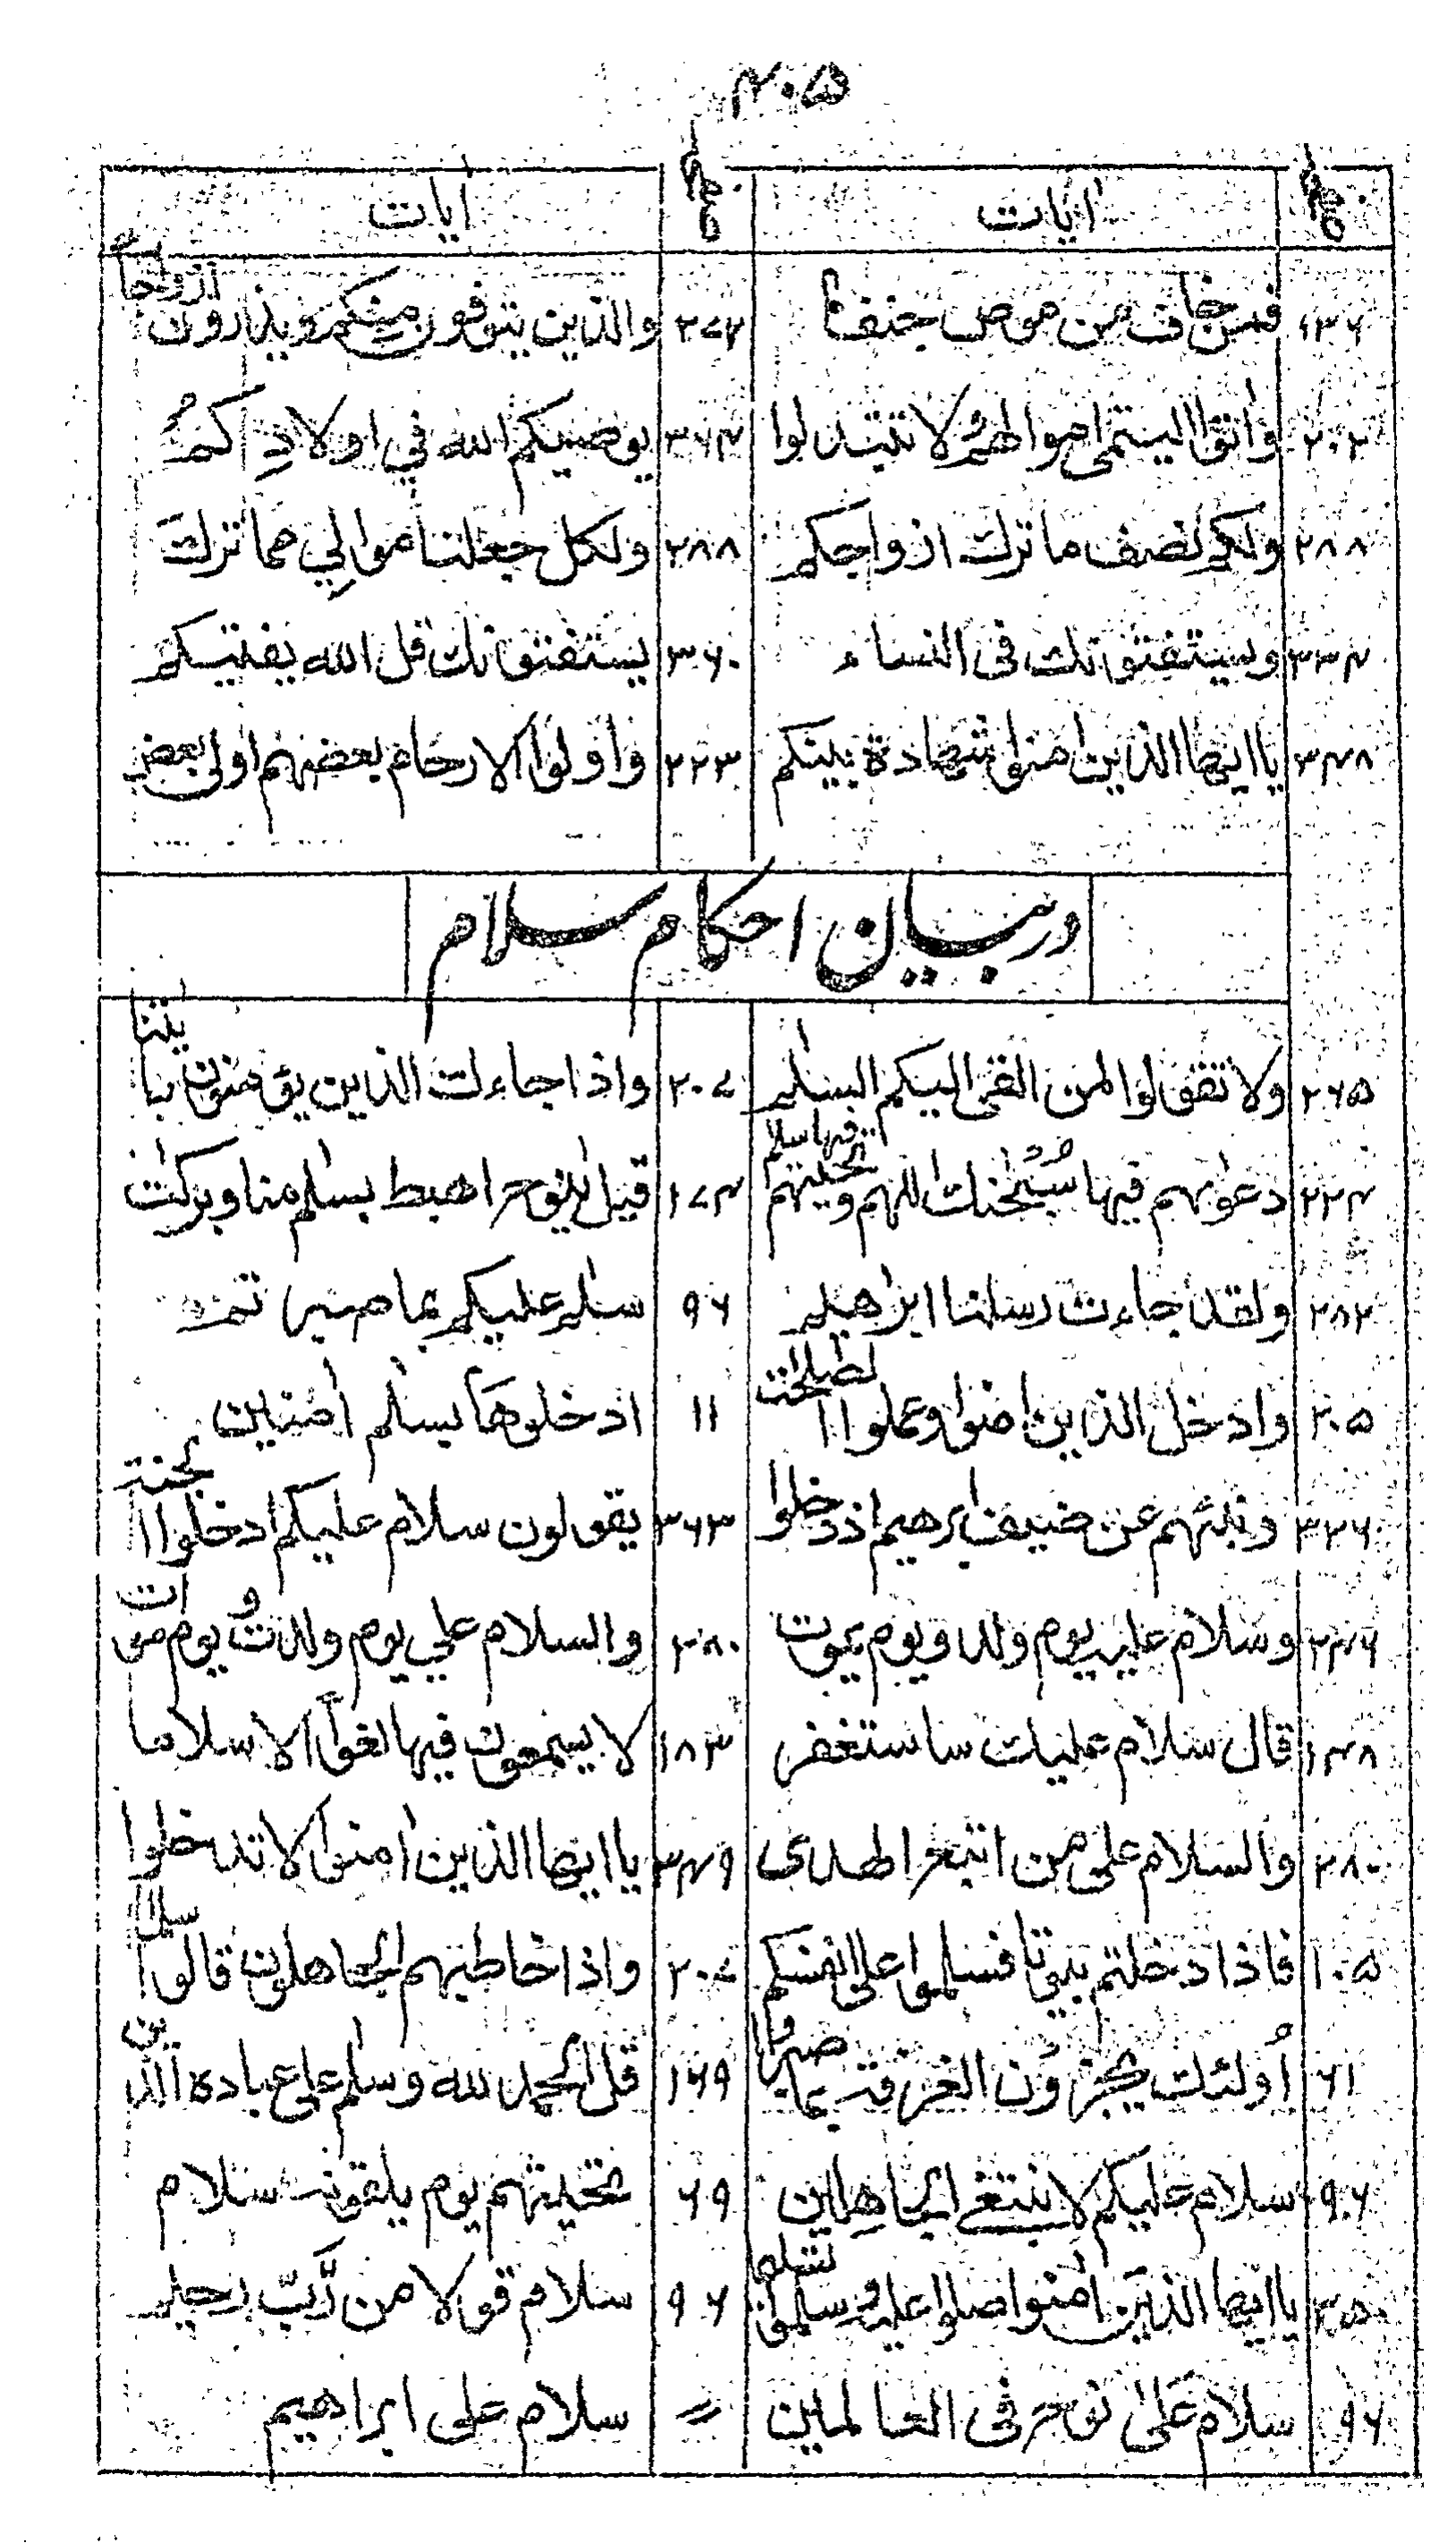 ۴۰۵
صفحه ایات صفحه ایات
۱۳۶ فمن خاف من موص جنفا ۲۷۷ والذین یتوفون منکم ویذرون ازواجا
۲۰۲ واتوا الیتمی اموالهم ولا تتبدلوا ۳۶۴ یوصیکم الله فی اولادکم
۲۸۸ ولکم نصف ما ترک ازواجکم ۲۸۸ ولکل جعلنا موالی مما ترک
۳۳۴ ویستفتونک فی النساء ۳۶۰ یستفتونک قل الله یفتیکم
۳۴۸ یا ایها الذین امنوا شهادة بینکم ۲۲۳ واولوا الارحام بعضهم اولی ببعض
در بیان احکام سلام
۲۶۵ ولا تقولوا لمن القی الیکم السلم ۲۰۷ واذا جاءک الذین یؤمنون بایتنا
۲۲۴ دعوٰىهم فیها سُبْحٰنک اللهم وتحیتهم فیها سلام ۱۷۴ قیل ینوح اهبط بسلم منا وبرکت
۲۸۲ ولقد جاءت رسلنا ابراهیم ۹۶ سلم علیکم بما صبرتم
۲۰۵ وادخل الذین امنوا وعملوا الصلحت ۱۱ ادخلوها بسلم امنین
۳۲۶ ونبئهم عن ضیف ابرهیم اذ دخلوا ۳۶۳ یقولون سلام علیکم ادخلوا الجنة
۲۴۶ وسلام علیه یوم ولد ویوم یموت ۲۸۰ والسلام علی یوم ولدت ویوم اموت
۱۴۸ قال سلام علیک ساستغفر ۱۸۳ لا یسمعون فیها لغوا الا سلاما
۲۸۰ والسلام علی من اتبع الهدی ۳۴۹ یا ایها الذین امنوا لا تدخلوا
۱۰۵ فاذا دخلتم بیوتا فسلموا علی انفسکم ۲۰۷ واذا خاطبهم الجاهلون قالوا سلاما
۶۱ اُولئک یجزون الغرفة بما صبروا ۱۶۹ قل الحمد لله وسلم علی عباده الذین
۹۶ سلام علیکم لا نبتغی الجاهلین ۶۹ تحیتهم یوم یلقونه سلام
۲۵۰ یا ایها الذین امنوا صلوا علیه وسلموا تسلیما ۹۶ سلام قولا من رَّبّ رحیم
۹۶ سلام علی نوح فی العالمین = سلام علی ابراهیم